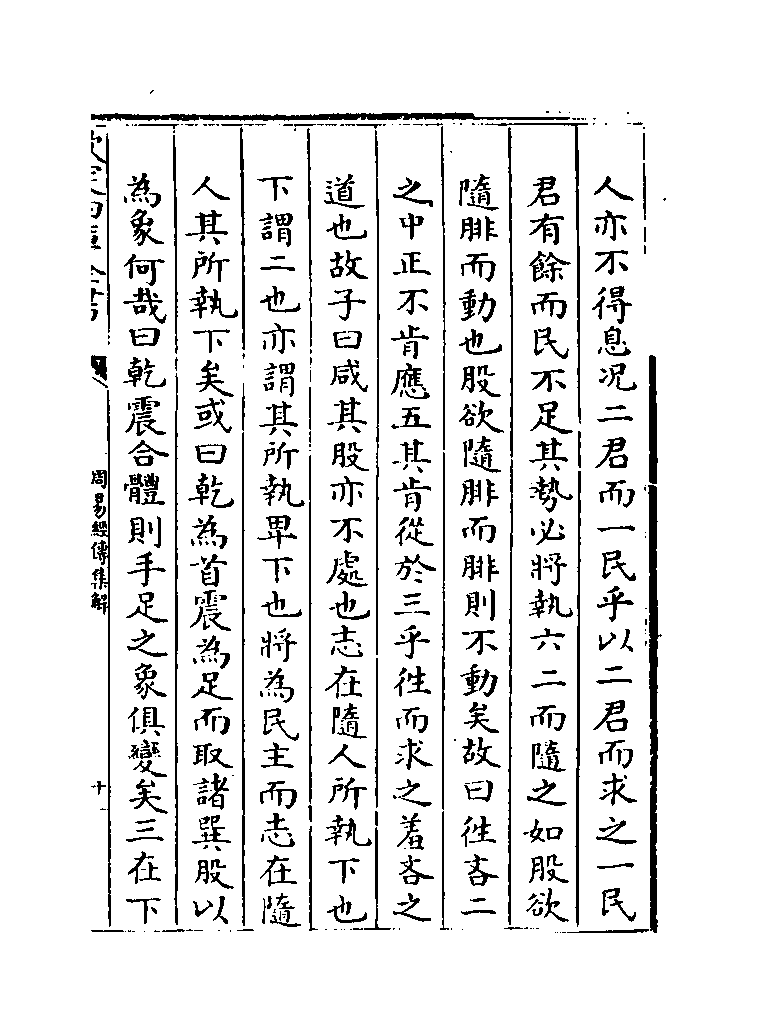 人亦不得息况二君而一民乎以二君而求之一民
君有餘而民不足其勢必將執六二而隨之如股欲
隨腓而動也股欲隨腓而腓則不動矣故曰徃吝二
之中正不肯應五其肯從於三乎徃而求之羞吝之
道也故子曰咸其股亦不處也志在隨人所執下也
下謂二也亦謂其所執卑下也將為民主而志在隨
人其所執下矣或曰乾為首震為足而取諸巽股以
為象何哉曰乾震合體則手足之象俱變矣三在下
周易經傳集解
十一